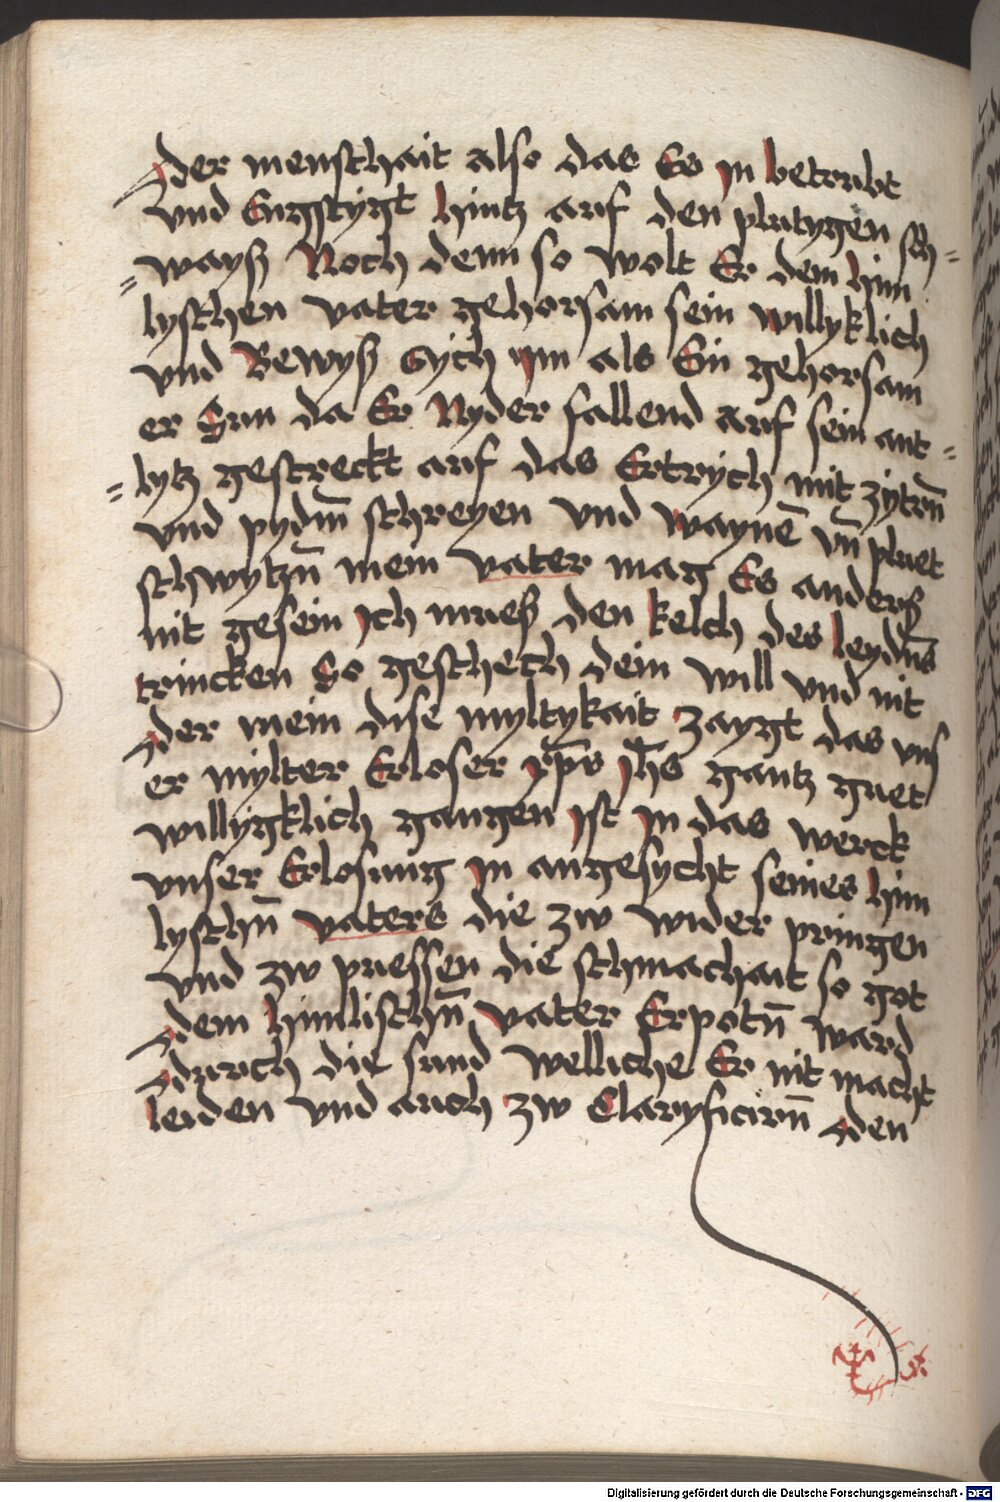 der menschait also das Es jn betrubt
vnd Engstygt hintz auf den plutygen sch=
=wayß Noch denn so wolt Er dem him
lyschen vater gehorsam sein willyklich
vnd Bewyß Sych jm als Ein gehorsam
er Sun da Er Nyder fallend auf sein ant=
=lytz gestreckt auf das Ertrych mit zytrn̄
vnd pydm̄ schreyen vnd waynē vn̄ pluet
schwytzn̄ mein vater mag Es anderß
nit gesein Ich mueß den kelch des leydn̄s
trincken So geschech dein will vnd nit
der mein dise myltykait zaygt das vns
er mylter Erloser xp̄s jh̄s gantz guet
willygklich gangen jst jn das werck
vnser Erlosung jn angesycht seines him
lyschn̄ vaters die zw wider pringen
vnd zw puessen die schmachait so got
dem himlischn̄ vater Erpotn̄ ward
durch die sund welliche Er nit macht
leiden vnd auch zw Claryficirn̄ den
Digitalisierung gefördert durch die Deutsche Forschungsgemeinschaft - DFG